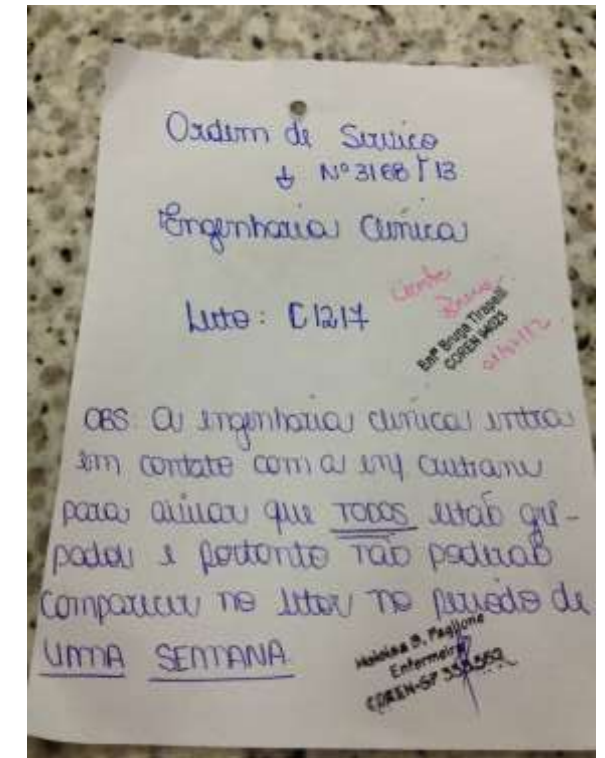 Ordem de Serviço
↓ Nº 3168713
Engenharia Clínica
Leito: C1217
Ciente
Bruna
Enfª Bruna Tirapelli
COREN
OBS: A engenharia clínica entra
em contato com a enf Cristiane
para avisar que TODOS estão gri-
pados e portanto não poderão
comparecer no setor no período de
UMA SEMANA
Heloisa B. Paglione
Enfermeira
COREN-SP 333.552